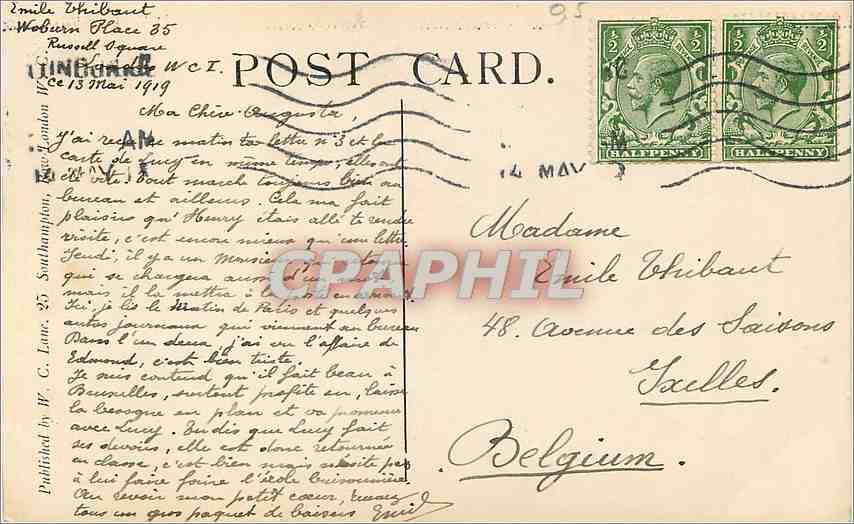 Emile Thibaut
Woburn Place 35
Russell Square
Londres W C I.
ce 13 Mai 1919
POST CARD.
95
1/2 1/2
HALFPENNY
1/2 1/2
HALFPENNY
AM
14 MAY 19
14 MAY
Published by W. C. Lane, 25 Southampton Row London W.C.
Ma Chère Augusta,
J'ai reçu ce matin ta lettre n°3 et la
carte de Lucy en même temps, elles ont
été vite. Tout marche toujours bien au
bureau et ailleurs. Cela m'a fait
plaisir qu'Henry était allé te rendre
visite, c'est encore mieux qu'une lettre
Jeudi, il y a un Monsieur
qui se chargera aussi d'un mot
mais il la mettra à la poste
Ici, je lis le Matin de Paris et quelques
autres journaux qui viennent au bureau
Dans l'un deux, j'ai vu l'affaire de
Edmond, c'est bien triste.
Je suis contend qu'il fait beau à
Bruxelles, surtout profite en, laisse
la besogne en plan et va promener
avec Lucy. Tu dis que Lucy fait
ses devoirs, elle est donc retournée
en classe, c'est bien mais n'hésite pas
à lui faire faire l'école buisonnière
Au revoir mon petit cœur,
tous un gros paquet de baisers Emile
CPAPHIL
Madame
Emile Thibaut
48. Avenue des Saisons
Ixelles.
Belgium.